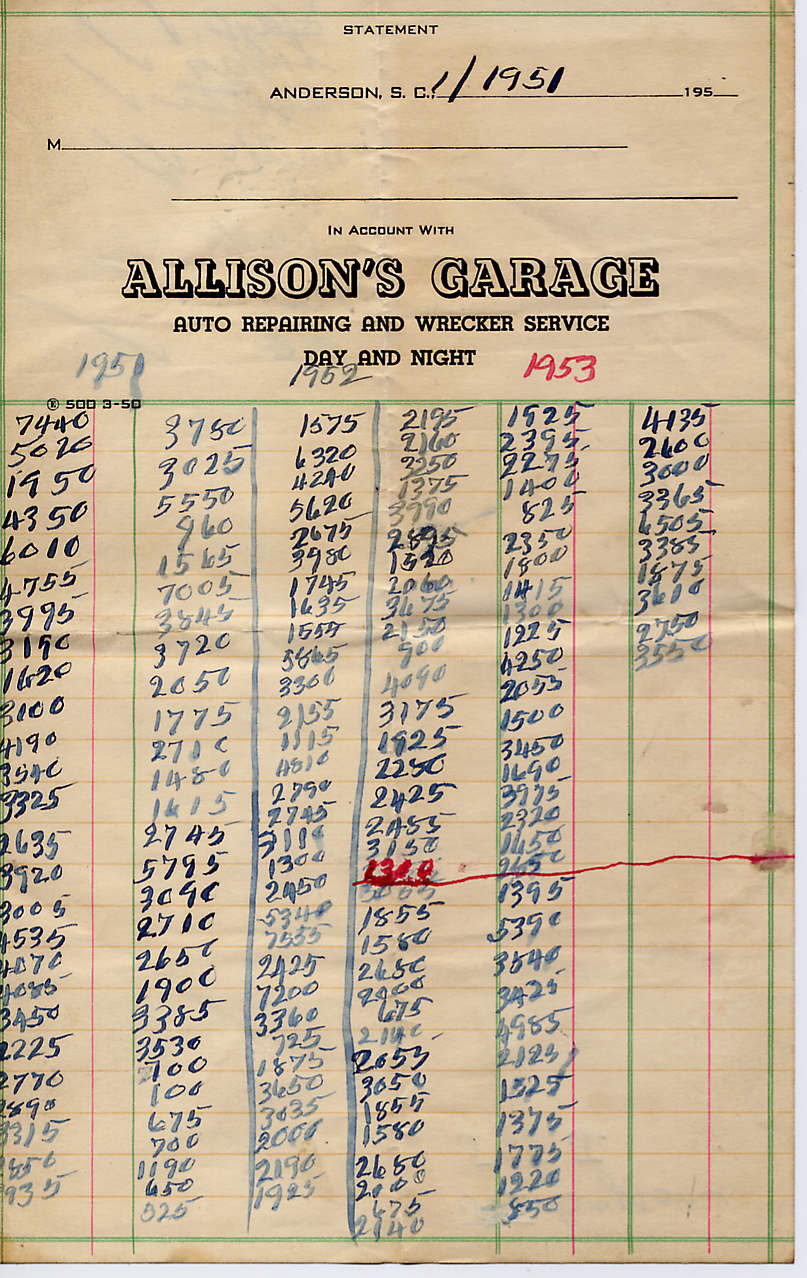 STATEMENT
ANDERSON, S. C., 1/1951 195
M
IN ACCOUNT WITH
ALLISON'S GARAGE
AUTO REPAIRING AND WRECKER SERVICE
DAY AND NIGHT
1951 1952 1953
® 500 3-50
7440
5020
1950
4350
6010
4755
3995
3190
1620
3100
4190
3540
3325
2635
3920
3005
4535
4070
4085
3450
2225
2770
2890
3315
850
935
3750
3025
5550
960
1565
7005
3845
3720
2050
1775
2710
1480
1615
2745
5795
3090
2710
2650
1900
3385
3530
700
100
675
700
1190
650
525
1575
6320
4240
5620
2675
3980
1745
1635
1555
5865
3300
2155
1115
4810
2790
2745
1300
2450
5340
7555
2425
7200
3360
725
1875
3650
3035
2000
2190
1925
2195
2160
3250
1375
3990
2895
1520
2060
3675
2150
900
4090
3175
1925
2280
2425
2485
3150
1310
1855
1580
2650
2900
675
2140
2055
3050
1855
1580
2650
2900
675
2140
1925
2395
2275
1400
825
2350
1800
1415
1300
1225
4250
2055
1500
3450
1690
3975
2320
1650
2650
1395
5390
3540
3425
4985
2125
1525
1375
1775
1220
850
4135
2600
3000
3365
6505
3385
1875
3610
2750
3550